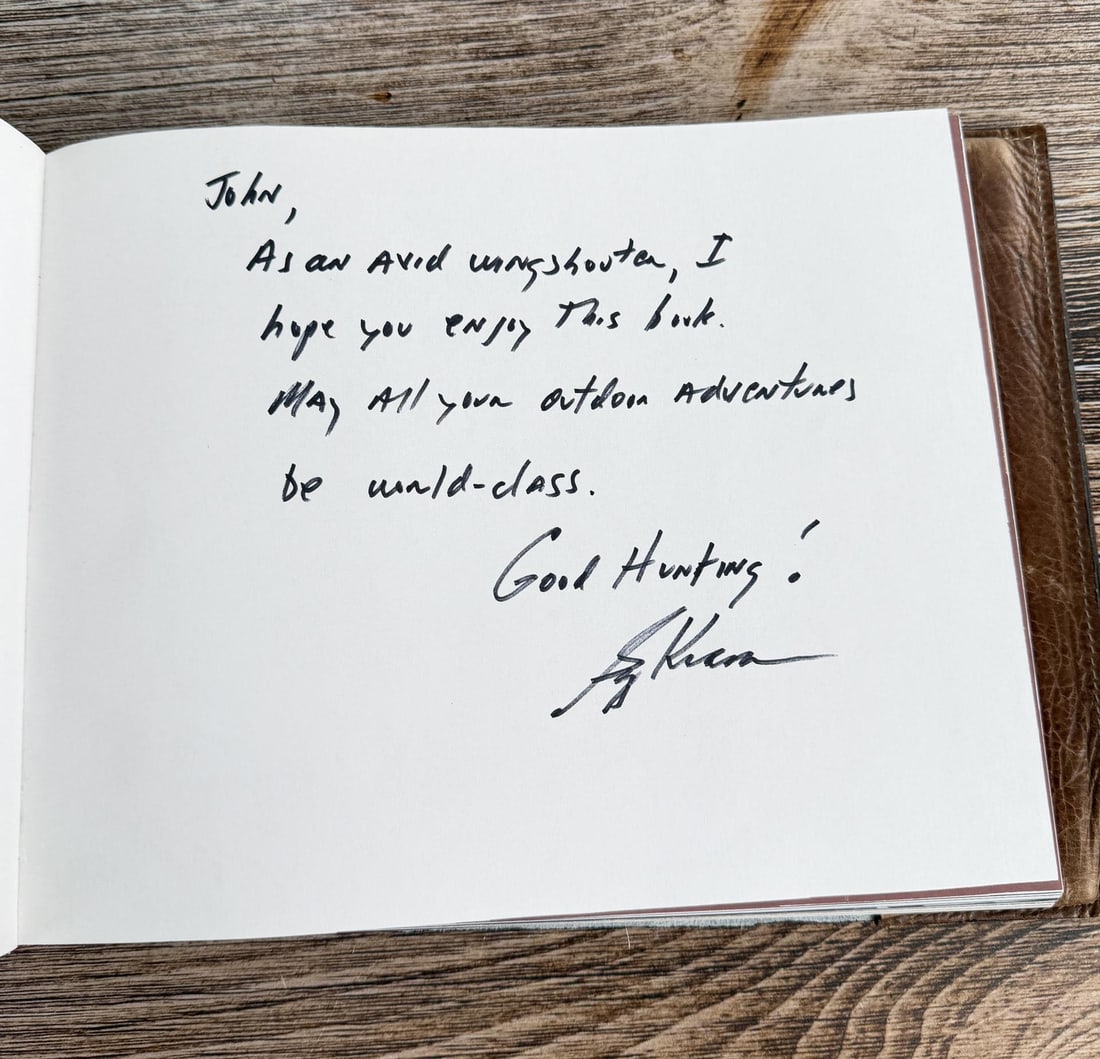 John,
As an avid wingshooter, I
hope you enjoy this book.
May all your outdoor adventures
be world-class.
Good Hunting!